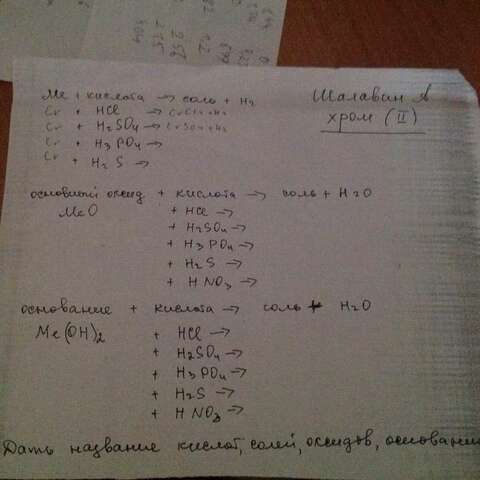 Ме + кислота → соль + H2
Шалавин А
Cr + HCl → CrCl2+H2
хром (II)
Cr + H2SO4 → CrSO4+H2
Cr + H3PO4 →
Cr + H2S →
основный оксид + кислота → соль + H2O
MeO + HCl →
+ H2SO4 →
+ H3PO4 →
+ H2S →
+ HNO3 →
основание + кислота → соль + H2O
Me(OH)2 + HCl →
+ H2SO4 →
+ H3PO4 →
+ H2S →
+ HNO3 →
Дать название кислот, солей, оксидов, основани